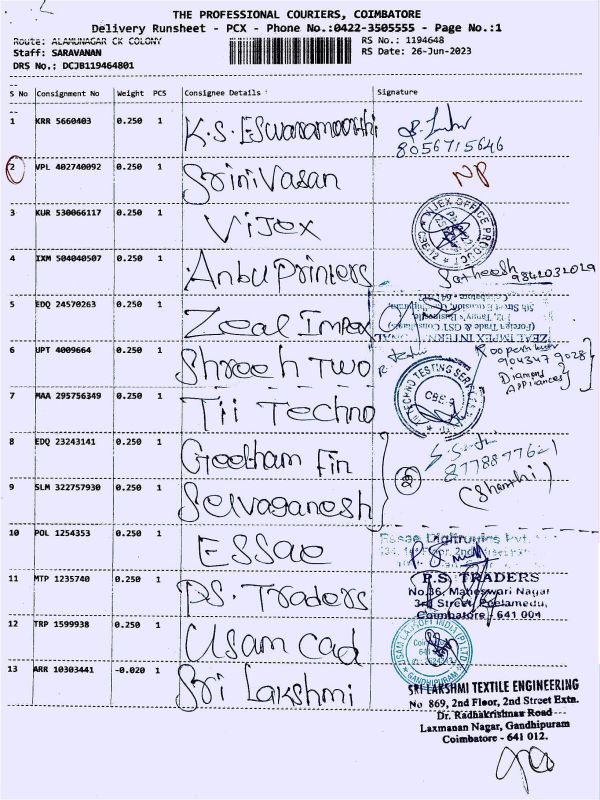 THE PROFESSIONAL COURIERS, COIMBATORE
Delivery Runsheet - PCX - Phone No.:0422-3505555 - Page No.:1
Route: ALAMUNAGAR CK COLONY
RS No.: 1194648
Staff: SARAVANAN
RS Date: 26-Jun-2023
DRS No.: DCJB119464801
S No Consignment No Weight PCS Consignee Details Signature
1 KRR 5660403 0.250 1 K.S. Eswaramoorthi
8056715646
2 VPL 402740092 0.250 1 Srinivasan NP
3 KUR 530066117 0.250 1 Vijex
CBE-12
4 IXM 504040507 0.250 1 Anbu Printers
Satheesh 9842032029
5 EDQ 24570263 0.250 1 Zeal Impex
ZEAL IMPEX INTERNATIONAL
(Foreign Trade & GST Consultants)
6 UPT 4009664 0.250 1 Shree h Two
904347 9028
Diamond
Appliances
7 MAA 295756349 0.250 1 Tii Techno
TECHNO TESTING SERVICES
CBE
8 EDQ 23243141 0.250 1 Geetham Fin
8778877621
(Shanthi)
9 SLM 322757930 0.250 1 Selvaganesh
10 POL 1254353 0.250 1 ESSae
Essae Digitronics Pvt.
11 MTP 1235740 0.250 1 P.S. Traders
P.S. TRADERS
No.36, Maheswari Nagar
3rd Street, Peelamedu,
Coimbatore - 641 004
12 TRP 1599938 0.250 1 Usam Cad
GANDHIPURAM
13 ARR 10303441 -0.020 1 Sri Lakshmi
SRI LAKSHMI TEXTILE ENGINEERING
No 869, 2nd Floor, 2nd Street Extn.
Dr. Radhakrishnan Road
Laxmanan Nagar, Gandhipuram
Coimbatore - 641 012.